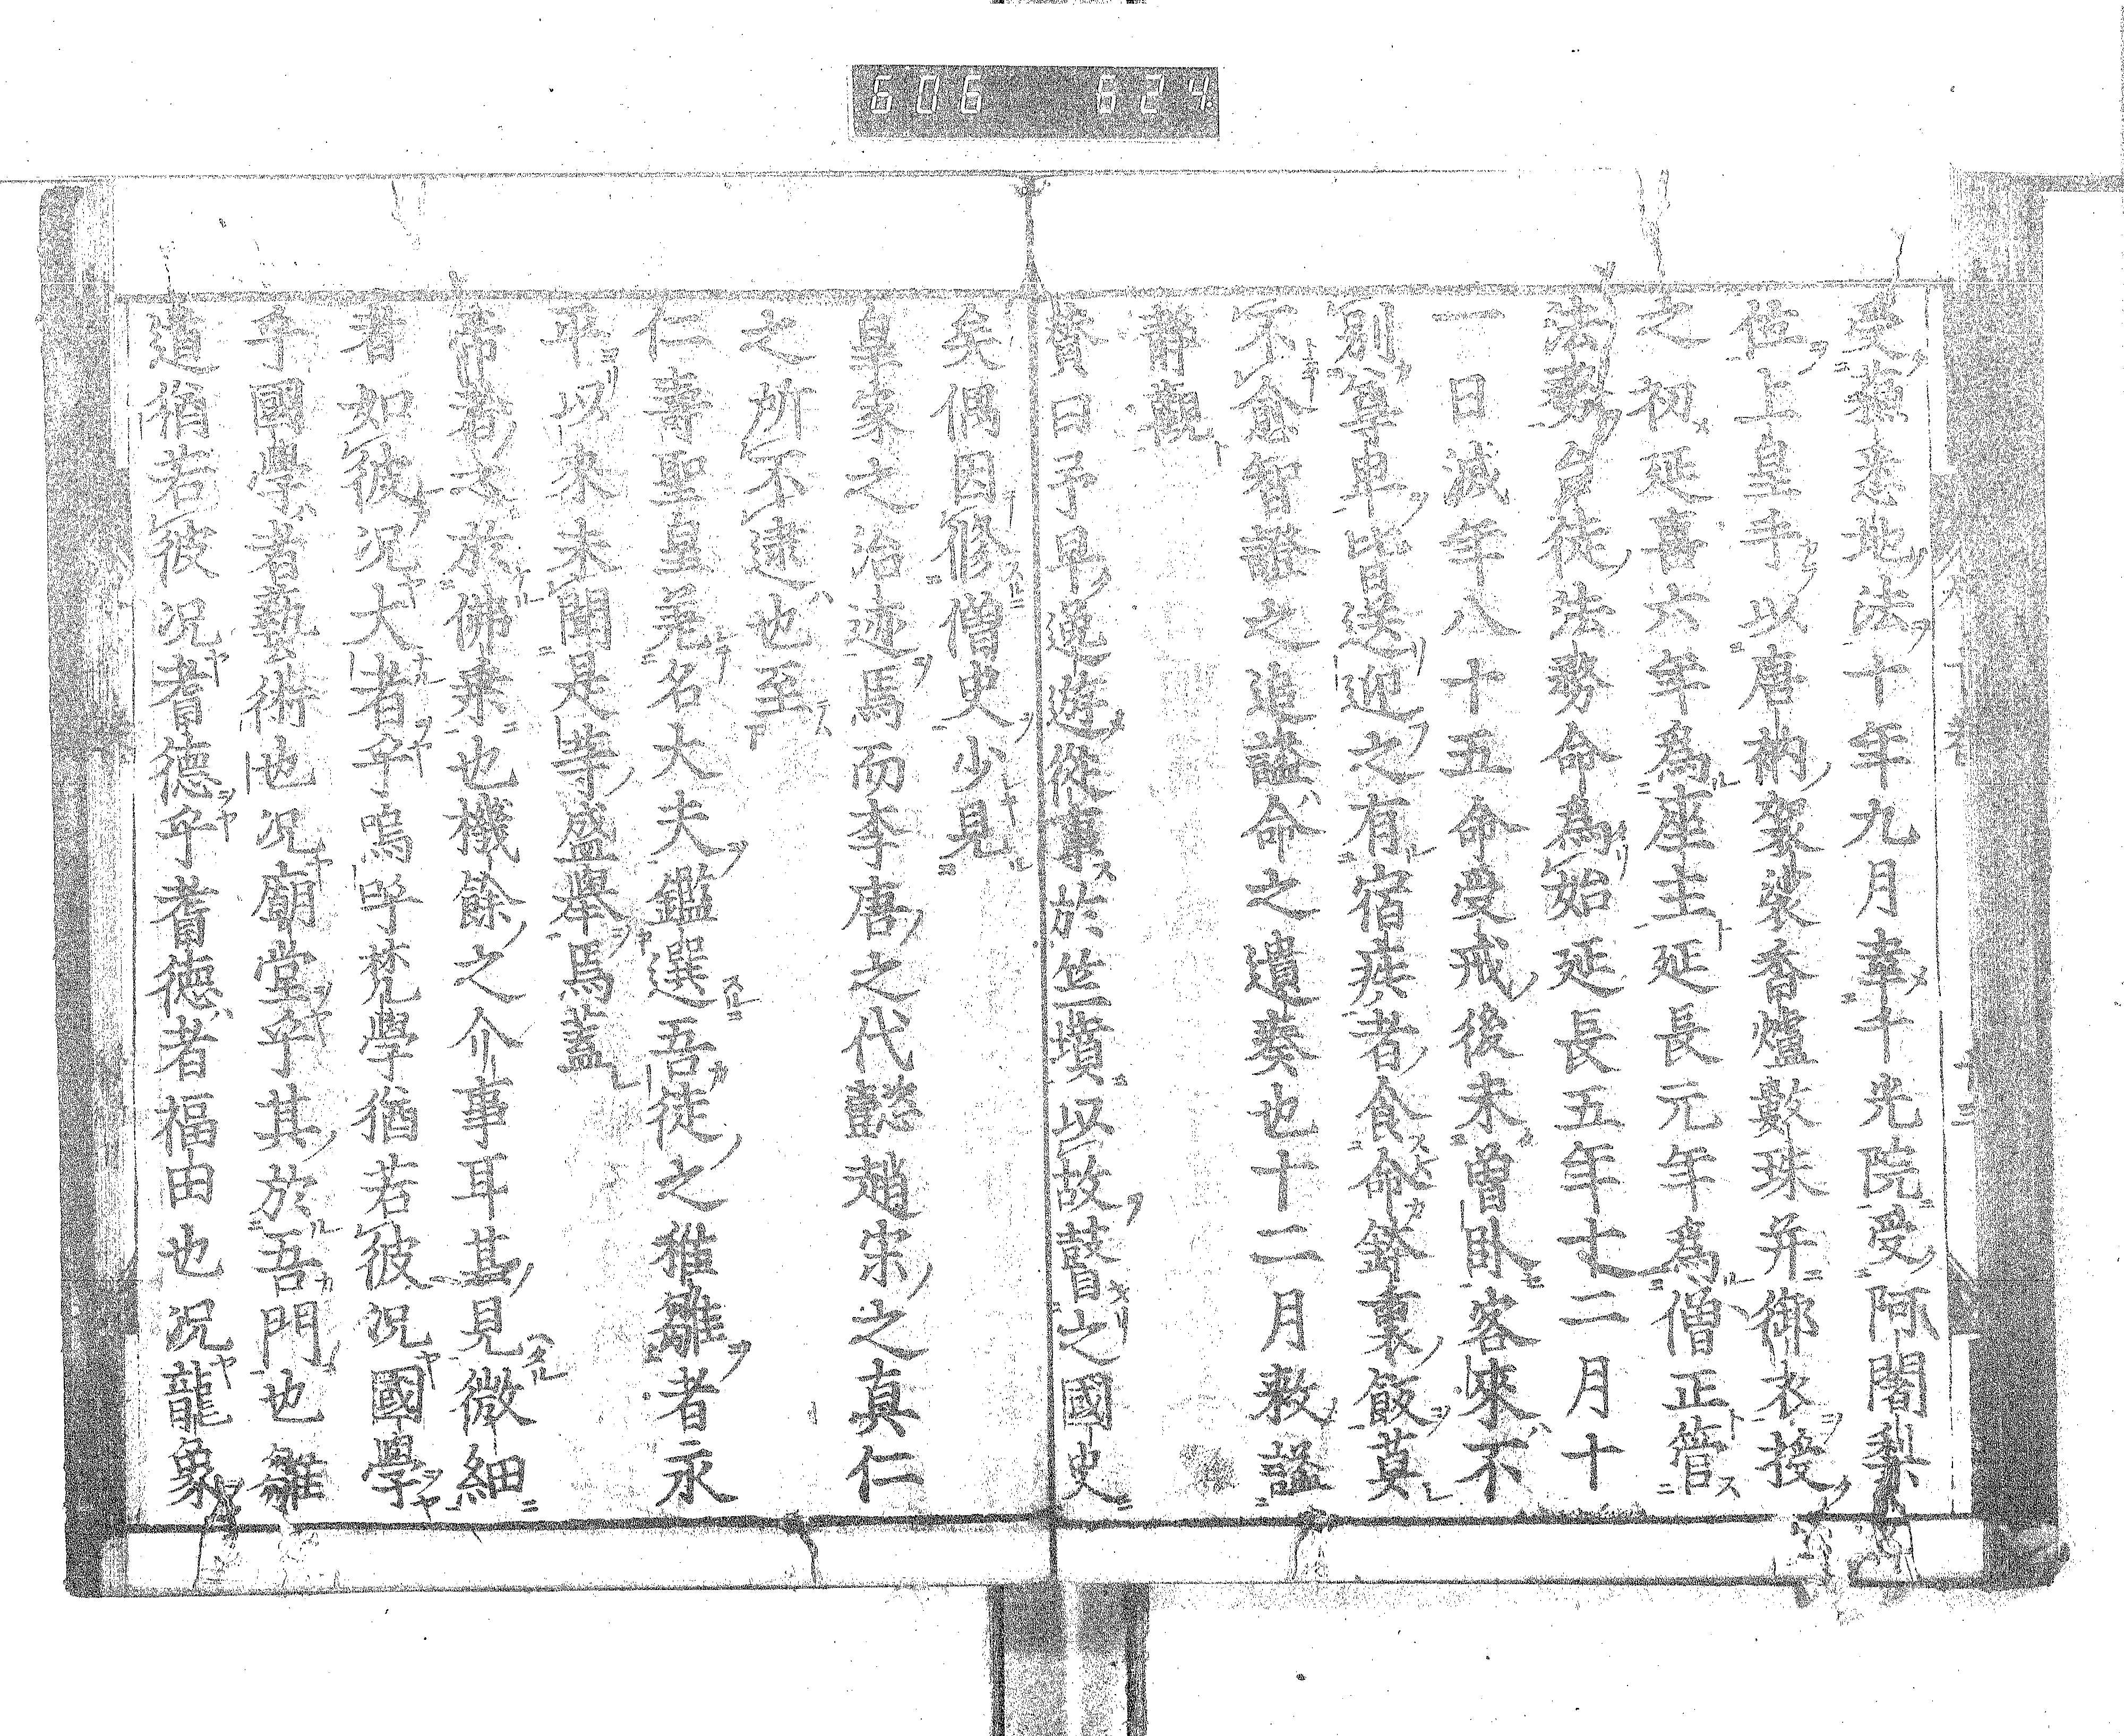 606 624
受蘇悉地法十年九月幸千光院受阿闍梨
位上皇手以唐衲袈裟香爐數珠并御衣授
之初延喜六年爲座主延長元年爲僧正管
法務台徒法務命爲始延長五年十二月十
一日滅年八十五命受戒後未曽臥客來不
別尊卑皆送迎之有宿疾者食命鉢裏飯莫
不愈智證之追謚命之遺奏也十二月敕謚
静觀
賛曰予早遊從事於竺墳以故瞽之國史
矣偶因修僧史少見
皇家之治迹焉而李唐之代懿趙宋之真仁
之所不逮也至
仁壽聖皇差名大夫鑑選吾徒之稚雛者永
平以來未聞是等盛舉焉蓋
帝者之於佛乘也機餘之介事耳甚見微細
者如彼况大者乎嗚呼梵學猶若彼况國學
乎國學者藝術也况廟堂乎其於吾門也雛
道猶若彼况耆德乎耆德者福田也况龍象